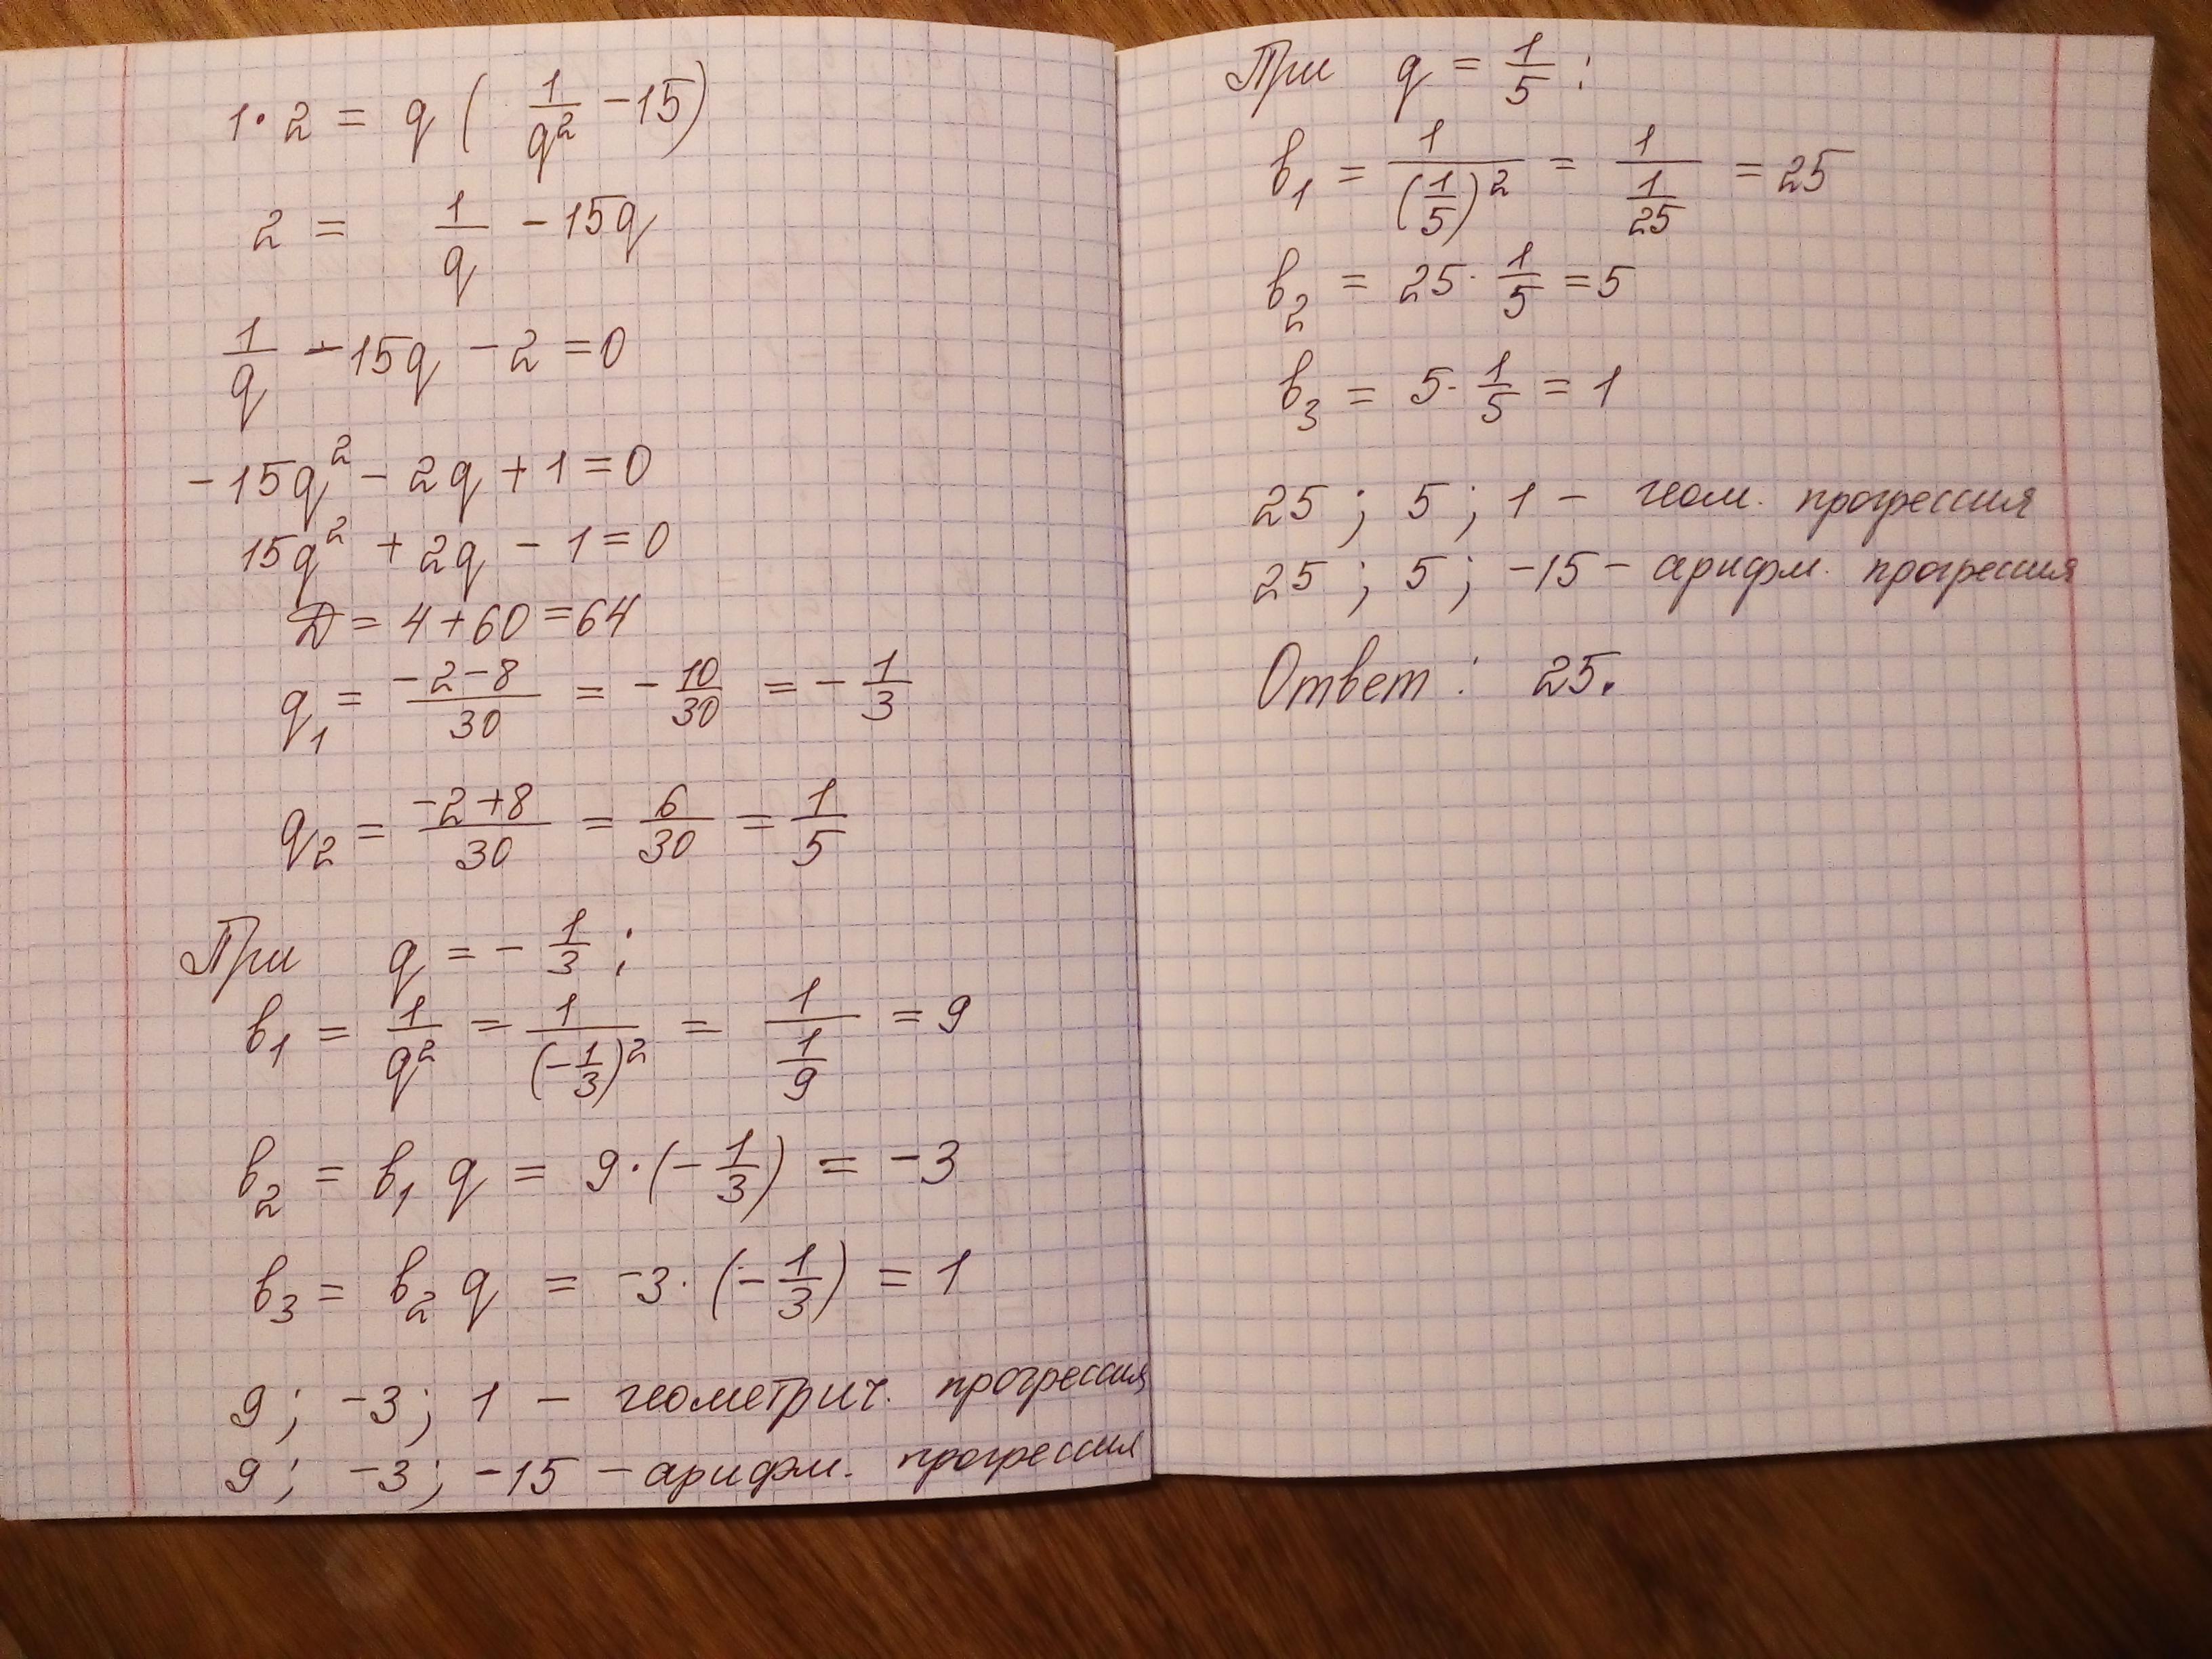 1·2 = q(1/q² - 15)
2 = 1/q - 15q
1/q - 15q - 2 = 0
-15q² - 2q + 1 = 0
15q² + 2q - 1 = 0
D = 4 + 60 = 64
q₁ = (-2-8)/30 = -10/30 = -1/3
q₂ = (-2+8)/30 = 6/30 = 1/5
При q = -1/3 :
b₁ = 1/q² = 1/(-1/3)² = 1/(1/9) = 9
b₂ = b₁ q = 9·(-1/3) = -3
b₃ = b₂ q = -3·(-1/3) = 1
9; -3; 1 - геометрич. прогрессия
9; -3; -15 - арифм. прогрессия
При q = 1/5 :
b₁ = 1/(1/5)² = 1/(1/25) = 25
b₂ = 25·1/5 = 5
b₃ = 5·1/5 = 1
25; 5; 1 - геом. прогрессия
25; 5; -15 - арифм. прогрессия
Ответ: 25.